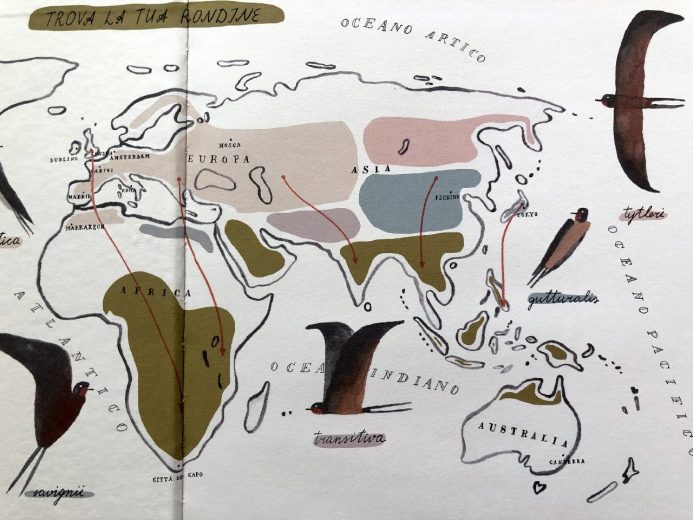 TROVA LA TUA RONDINE
OCEANO ARTICO
DUBLINO
AMSTERDAM
PARIGI
MADRID
ROMA
MARRAKECH
MOSCA
EUROPA
ASIA
PECHINO
TOKYO
tica
tytleri
gutturalis
AFRICA
ATLANTICO
OCEANO PACIFICO
OCEA
INDIANO
transitiva
savignii
CITTÀ DEL CAPO
AUSTRALIA
CANBERRA